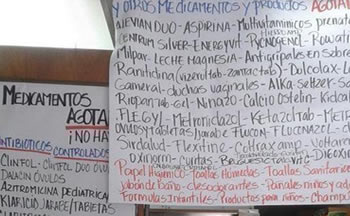 Y OTROS MEDICAMENTOS Y PRODUCTOS AGOTA
ALEVIAN DUO - ASPIRINA - Multivitaminicos prenata
CENTRUM SILVER - ENERGYVIT - PYCNOGENOL - Rowat
Milpar - LECHE MAGNESIA - Antigripales en sobre
Ranitidina (vizerul tab - zantac tab) - Dulcolax - L
Gameral - duchas vaginales - ALKA-SELTZER - S
Riopan Tab - Gel - NENAZO - Calcio Ostelin - Kidcal
FLEGYL - Metronidazol - KETAZOL Tab - MET
OVULOS Y TABLETAS / Jarabe - FLUCON - FLUCONAZOL - c
Sirdalud - Flexitine - Coltrax amp - Voltaren
Oxinorin - Curitas -
Papel Higienico - Toallas Húmedas - Toallas Sanitarias
Jabón de Baño - desodorantes - Pañales niños y ad
Formulas Infantiles - Productos para niños - Champ
MEDICAMENTOS
AGOTA
¡NO HA
ANTIBIOTICOS CONTROLADOS
CLINFOL - CLINFOL DUO OVU
DALACIN OVULOS
AZITROMICINA PEDIATRICA
KLARICID JARABE / TABLETAS